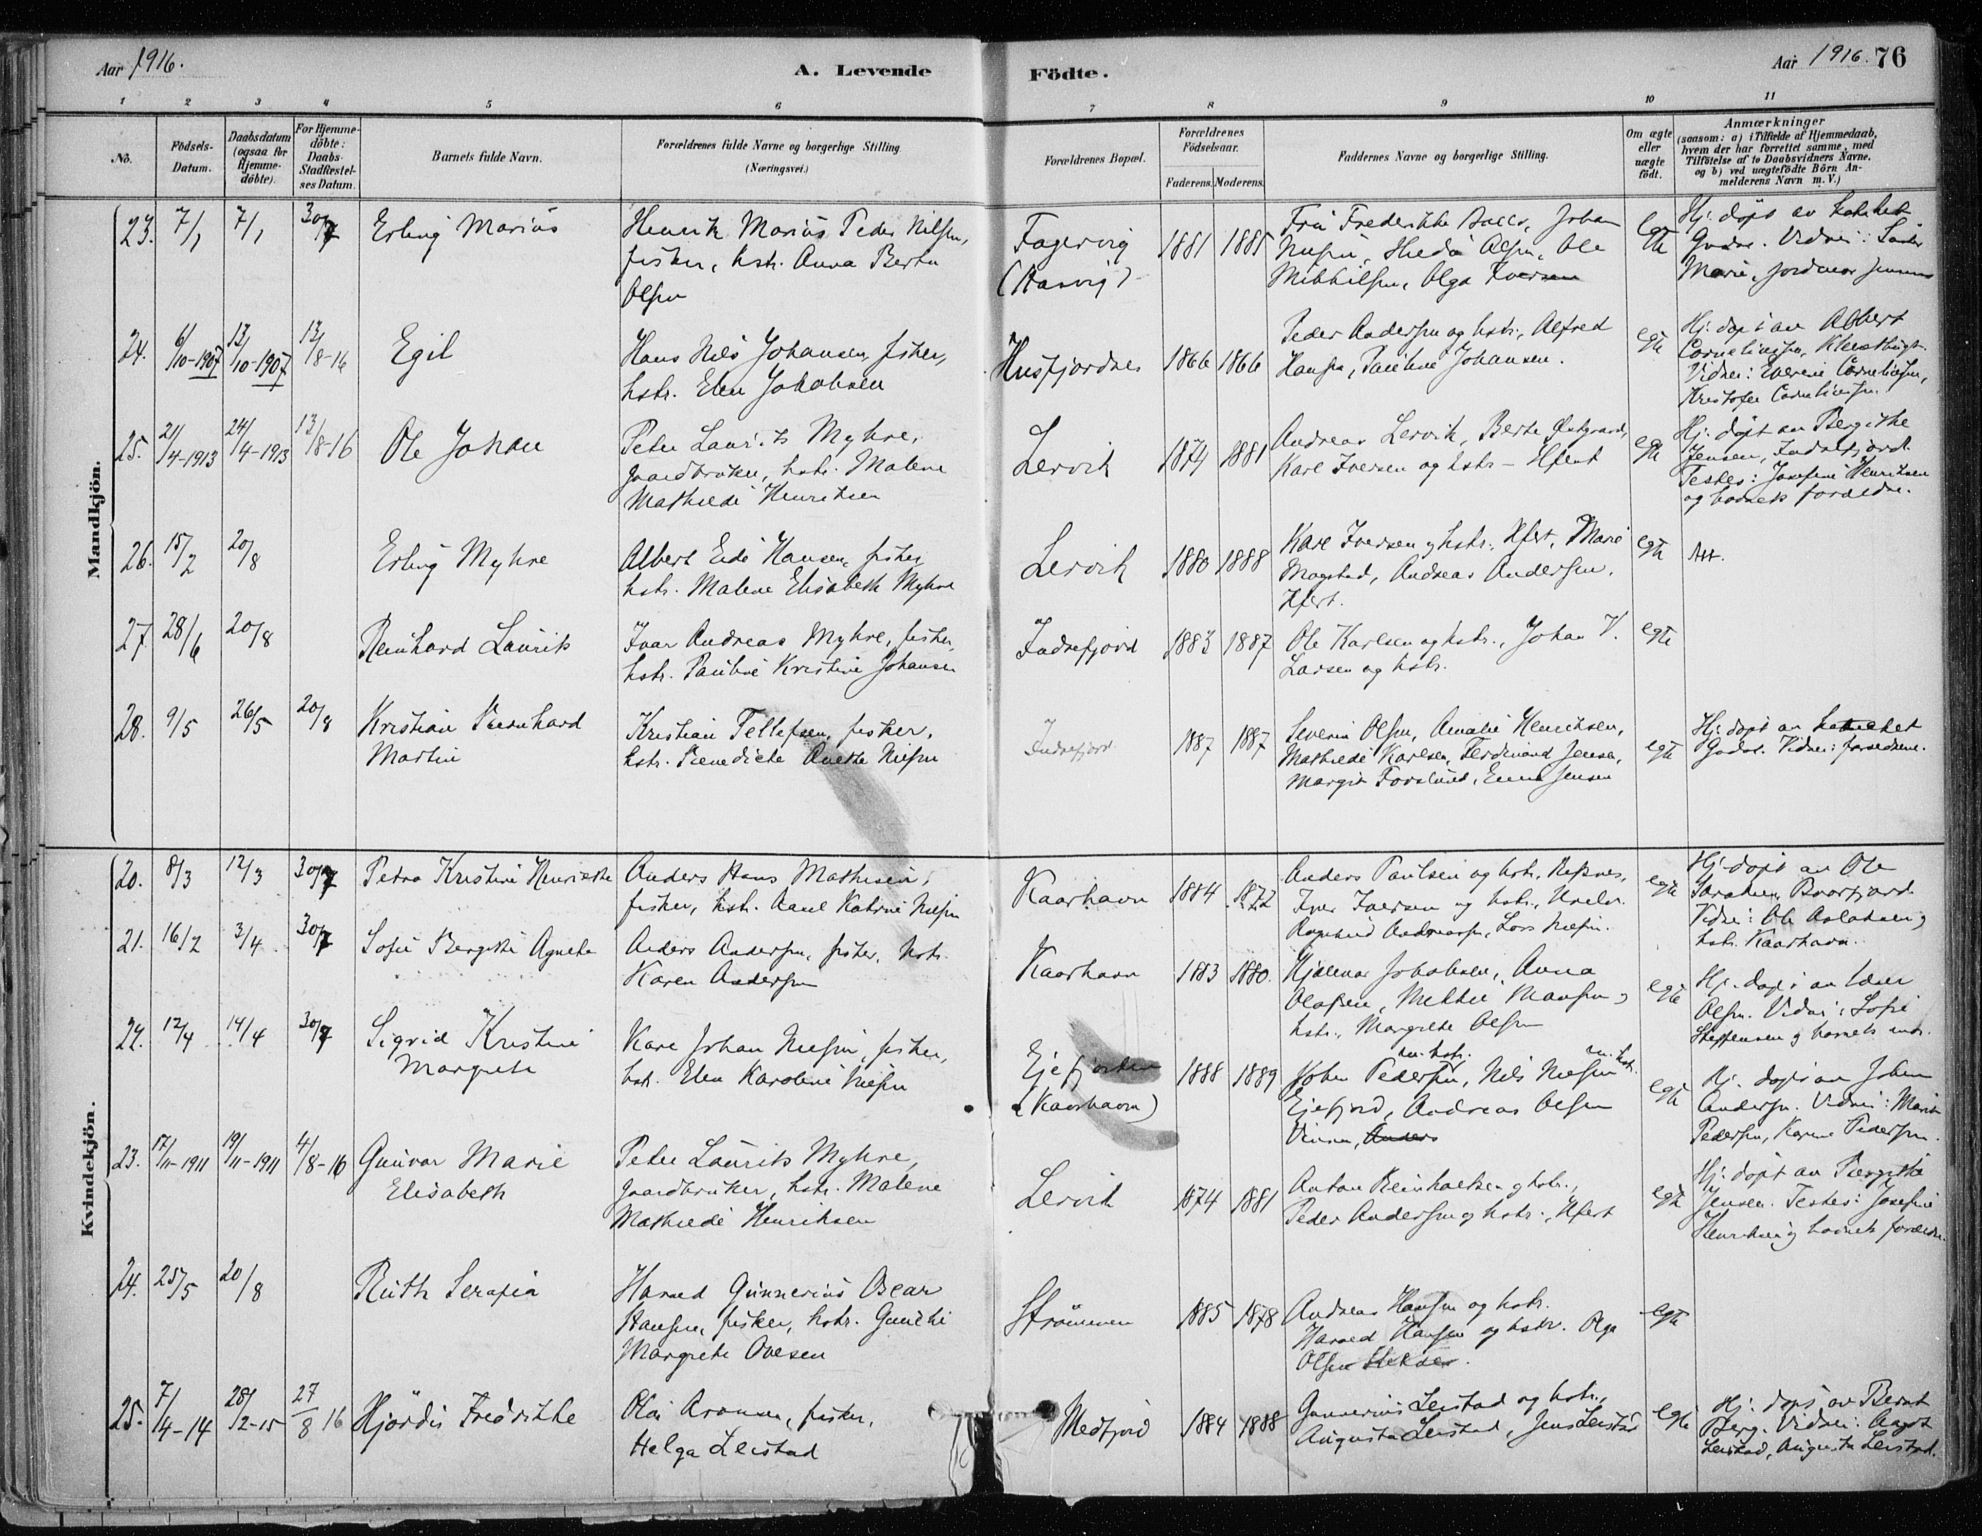 Aar 1916.
A. Levende
Födte.
Aar 1916. 76
1 2 3 4 5 6 7 8 9 10 11
No.
Födsels-
Datum.
Daabsdatum
(ogsaa for
Hjemme-
döbte).
For Hjemme-
döbte:
Daabs-
Stadfæstel-
ses Datum.
Barnets fulde Navn.
Forældrenes fulde Navne og borgerlige Stilling
(Næringsvei.)
Forældrenes Bopæl.
Forældrenes
Födselsaar.
Faderens. Moderens.
Faddernes Navne og borgerlige Stilling.
Om ægte
eller
uægte
födt.
Anmærkninger
(saasom: a) i Tilfælde af Hjemmedaab,
hvem der har forrettet samme, med
Tilföielse af to Daabsvidners Navne.
og b) ved uægtefödte Börn An-
melderens Navn m. V.)
Mandkjön.
23. 7/1 7/1 30/7 Erling Marius
Henrik Marius Peder Nilsen,
fisker, hstr. Anna Berta
Olsen
Fagervig
(Hasvig)
1881 1885
Fru Frederikke Johan
Olsen, Ole
Mikkelsen, Olga Iversen
egte
Hj. døpt av kateket
Vidner:
Marie, jordmor
24. 6/10-1907 13/10-1907 13/8-16 Egil
Hans Nils Johansen, fisker,
hstr. Elen Jakobsen
Husfjordnes
1866 1866
Peder Andersen og hstr., Alfred
Hansen, Pauline Johansen.
egte
Hj. døpt av Albert
Corneliussen,
Vidner: Corneliussen,
Kristofer Corneliussen.
25. 21/4-1913 24/4-1913 13/8-16 Ole Johan
Peder Laurits Myhre,
gaardbruker, hstr. Malene
Mathilde Henriksen
Lervik
1874 1881
Andreas Lervik, Berte
Karl Iversen og hstr.
egte
Hj. døpt av Bergithe
Jensen, Indrefjord.
Testes: Josefine Henriksen
og barnets foreldre.
26. 15/2 20/8 Erling Myhre
Albert Hansen, fisker,
hstr. Malene Elisabeth Myhre
Lervik
1880 1888
Karl Iversen og hstr., Marie
Mogstad, Andreas Andersen,
egte
27. 28/6 20/8 Reinhard Laurits
Ivar Andreas Myhre, fisker,
hstr. Pauline Kristine Johansen
Indrefjord
1883 1887
Ole Karlsen og hstr., Johan V.
Larsen og hstr.
egte
28. 9/5 26/5 20/8 Kristian Bernhard
Martin
Kristian Tellefsen, fisker,
hstr. Benedicte Anette Nilsen
Indrefjord.
1887 1887
Severin Olsen, Amalie Henriksen,
Mathilde Karlsen, Ferdinand Jensen,
Margit Forslund, Jensen
egte
Hj. døpt av kateket
Vidner: foreldrene.
Kvindekjön.
20. 8/3 12/3 30/7 Petra Kristine Henriette
Anders Hans Mathisen,
fisker, hstr. Katrine Nilsen
Kaarhavn
1884 1872
Anders Paulsen og hstr.,
Iver Iversen og hstr.,
Lars Nilsen.
egte
Hj. døpt av Ole
Vidner: Ole Aslaksen og
hstr. Kaarhavn.
21. 16/2 3/4 30/7 Sofie Bergitte Agnete
Anders Andersen, fisker, hstr.
Karen Andersen
Kaarhavn
1883 1880.
Hjalmar Jakobsen, Anna
Olafsen, Hansen og
hstr., Margrete Olsen
egte
Hj. døpt av
Olsen. Vidner: Sofie
Steffensen og barnets mor.
22. 12/4 14/4 30/7 Sigrid Kristine
Margrete
Karl Johan Nilsen, fisker,
hstr. Elen Karoline Nilsen
Ejefjorden
(Kaarhavn)
1888 1889
m. hstr. m. hstr.
Johan Pedersen, Nils Nilsen
Ejefjord, Andreas Olsen
Anders
egte
Hj. døpt av Johan
Andersen. Vidner: Marit
Pedersen, Karen Pedersen.
23. 17/11-1911 19/11-1911 4/8-16 Gunvor Marie
Elisabeth
Peder Laurits Myhre,
gaardbruker, hstr. Malene
Mathilde Henriksen
Lervik
1874 1881
Anton Reinholtsen og hstr.,
Peder Andersen og hstr.,
egte
Hj. døpt av Bergitte
Jensen. Testes: Josefine
Henriksen og barnets foreldre.
24. 25/5 20/8 Ruth Serafia
Harald Gunnerius Oscar
Hansen, fisker, hstr.
Margrete Ovesen
Strømmen
1885 1878
Andreas Hansen og hstr.
Harald Hansen og hstr. Olga
Olsen
egte
25. 7/4-14 28/2-15 27/8 16 Hjördis Fredrikke
Olai Aronsen, fisker,
Helga Leistad
Medfjord
1884 1888
Gunnerius Leistad og hstr.,
Augusta Leistad, Jens Leistad
egte
Hj. døpt av Bernt
Berg. Vidner: Aagot
Leistad, Augusta Leistad.